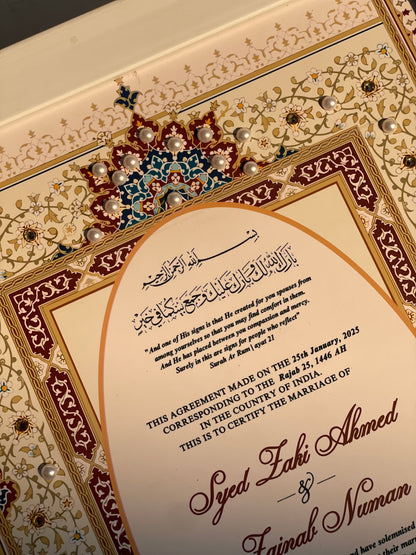 بسم الله الرحمن الرحيم
بارك الله لك وبارك عليك وجمع بينكما في خير
"And one of His signs is that He created for you spouses from
among yourselves so that you may find comfort in them.
And He has placed between you compassion and mercy.
Surely in this are signs for people who reflect"
Surah Ar Rum | ayat 21
THIS AGREEMENT MADE ON THE 25th January, 2025
CORRESPONDING TO THE Rajab 25, 1446 AH
IN THE COUNTRY OF INDIA.
THIS IS TO CERTIFY THE MARRIAGE OF
Syed Zaki Ahmed
&
Zainab Numan
have solemnised
their mar